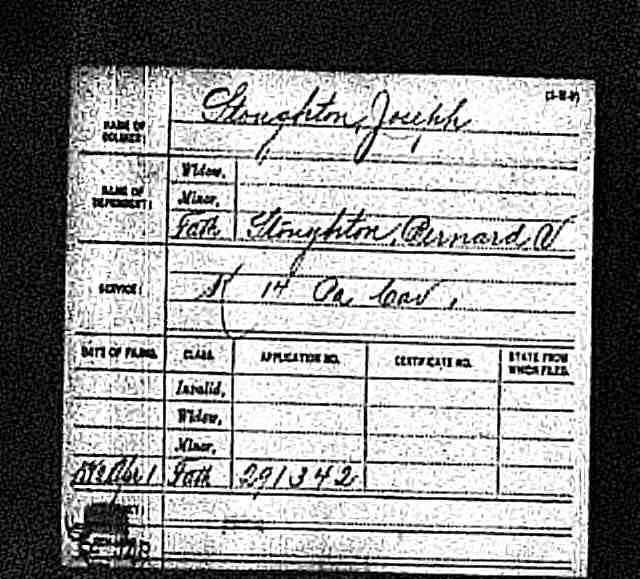 (3-M-P)
NAME OF SOLDIER: Stoughton, Joseph
NAME OF DEPENDENT:
Widow,
Minor,
Fath Stoughton, Bernard V
SERVICE: K 14 Pa. Cav.
DATE OF FILING. CLASS. APPLICATION NO. CERTIFICATE NO. STATE FROM WHICH FILED.
Invalid,
Widow,
Minor,
Apr 1 Fath 291342